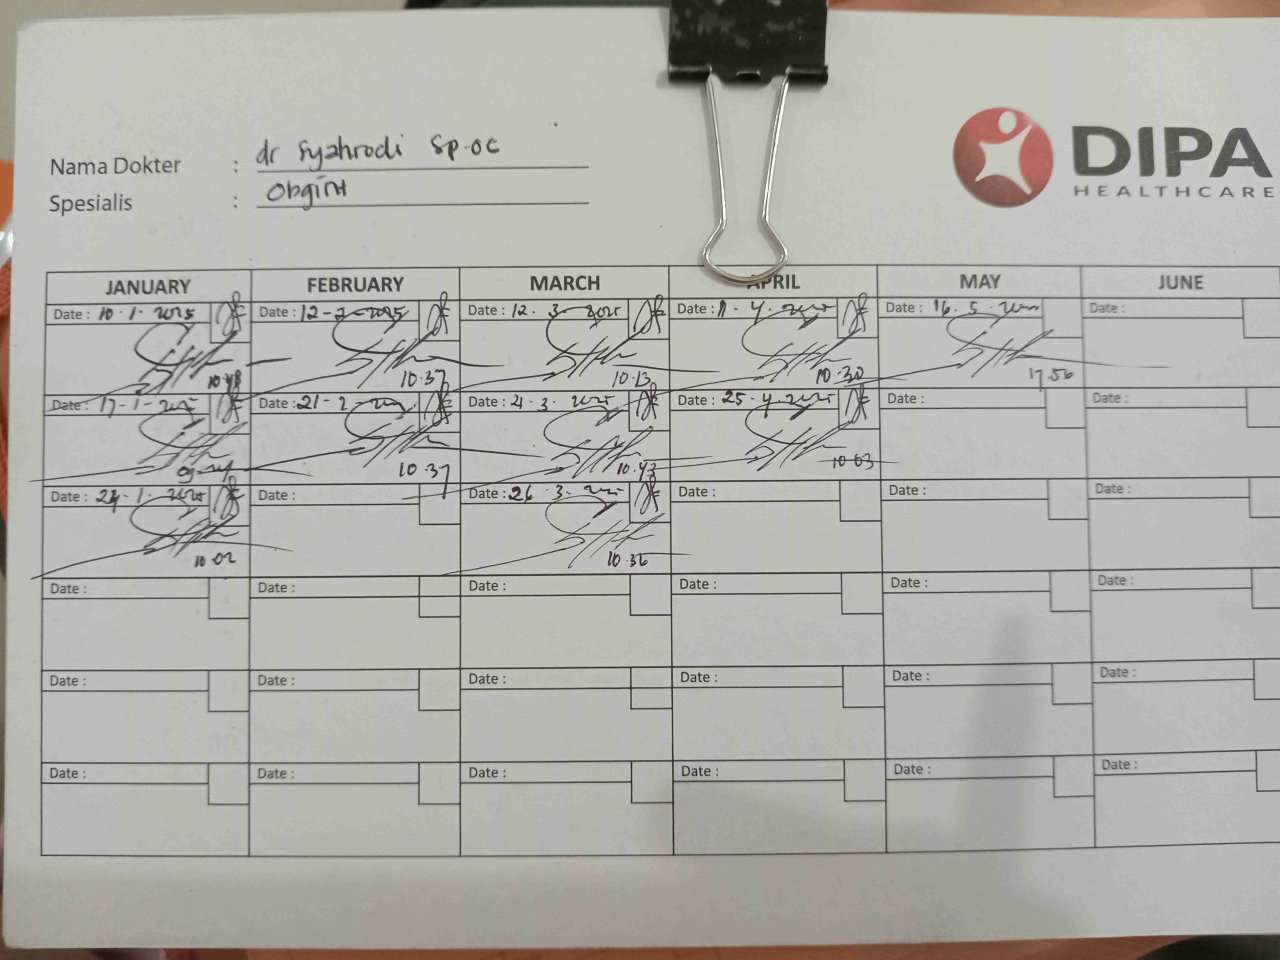 DIPA
HEALTHCARE
Nama Dokter : dr Syahrodi Sp.OG
Spesialis : Obgin
JANUARY FEBRUARY MARCH APRIL MAY JUNE
Date : 10-1-2025 Date : 12-2-2025 Date : 12.3.2025 Date : 11-4-2025 Date : 16.5.2025 Date :
10.48 10.37 10.13 10.30 17.56
Date : 17-1-2025 Date : 21-2-2025 Date : 21.3.2025 Date : 25-4-2025 Date : Date :
10.37 10.43 10.03
Date : 24-1-2025 Date : Date : 26.3.2025 Date : Date : Date :
10.02 10.36
Date : Date : Date : Date : Date : Date :
Date : Date : Date : Date : Date : Date :
Date : Date : Date : Date : Date : Date :